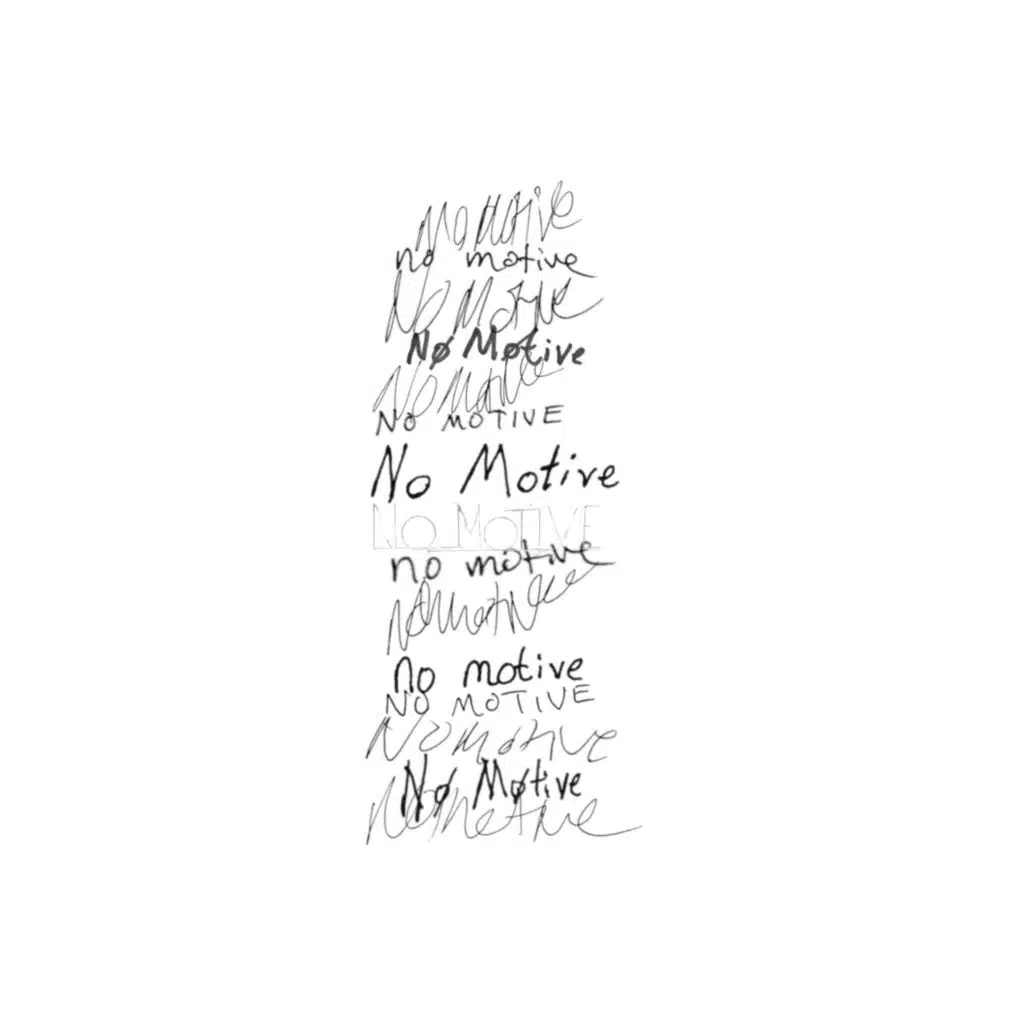 No Motive
no motive
No Motive
Nø Motive
No Motive
NO MOTIVE
No Motive
NO MOTIVE
no motive
no motive
no motive
NO MOTIVE
No Motive
Nø Møtive
No Motive